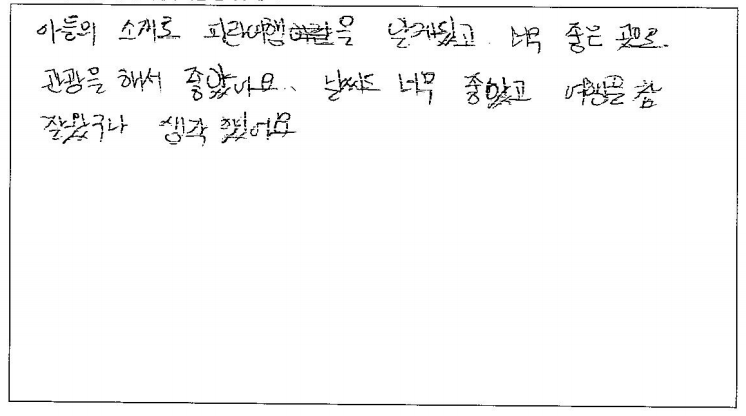 아들의 소개로 피란여행을 알게됐고 너무 좋은 곳으로
관광을 해서 좋았어요.. 날씨도 너무 좋았고 여행을 참
잘왔구나 생각 했어요